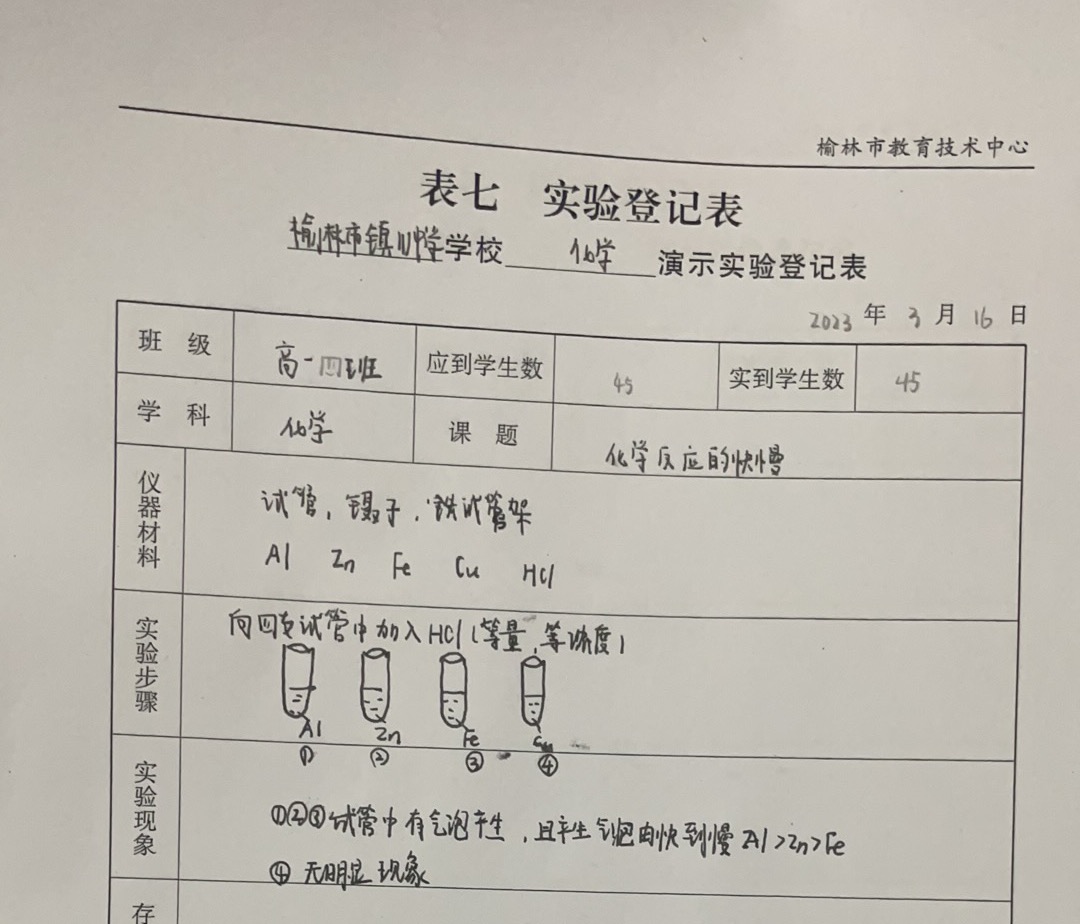 榆林市教育技术中心
表七 实验登记表
榆林市镇川中学学校 化学 演示实验登记表
2023 年 3 月 16 日
班 级 高一四班 应到学生数 45 实到学生数 45
学 科 化学 课 题 化学反应的快慢
仪器材料
试管,镊子,铁试管架
Al Zn Fe Cu HCl
实验步骤
向四支试管中加入HCl(等量,等浓度)
Al Zn Fe Cu
① ② ③ ④
实验现象
①②③试管中有气泡产生,且产生气泡由快到慢Al>Zn>Fe
④ 无明显现象
存